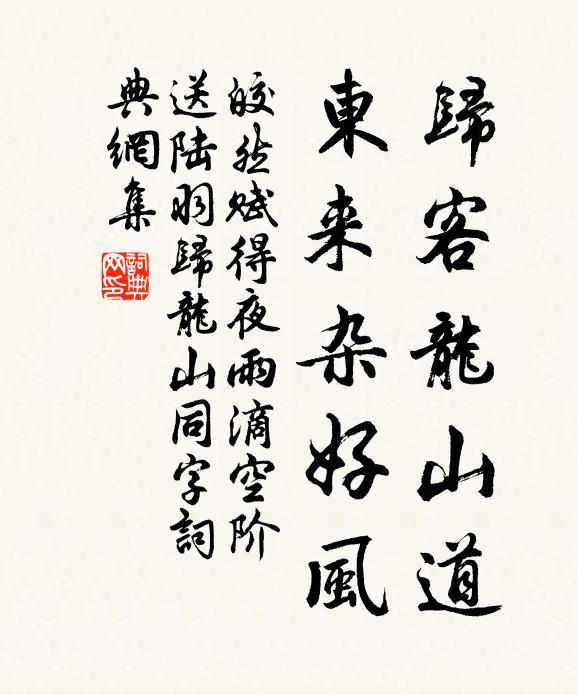 歸客龍山道
東来杂好風
皎然賦得夜雨滴空阶
送陆羽歸龍山同字詞
典網集
詞典网印